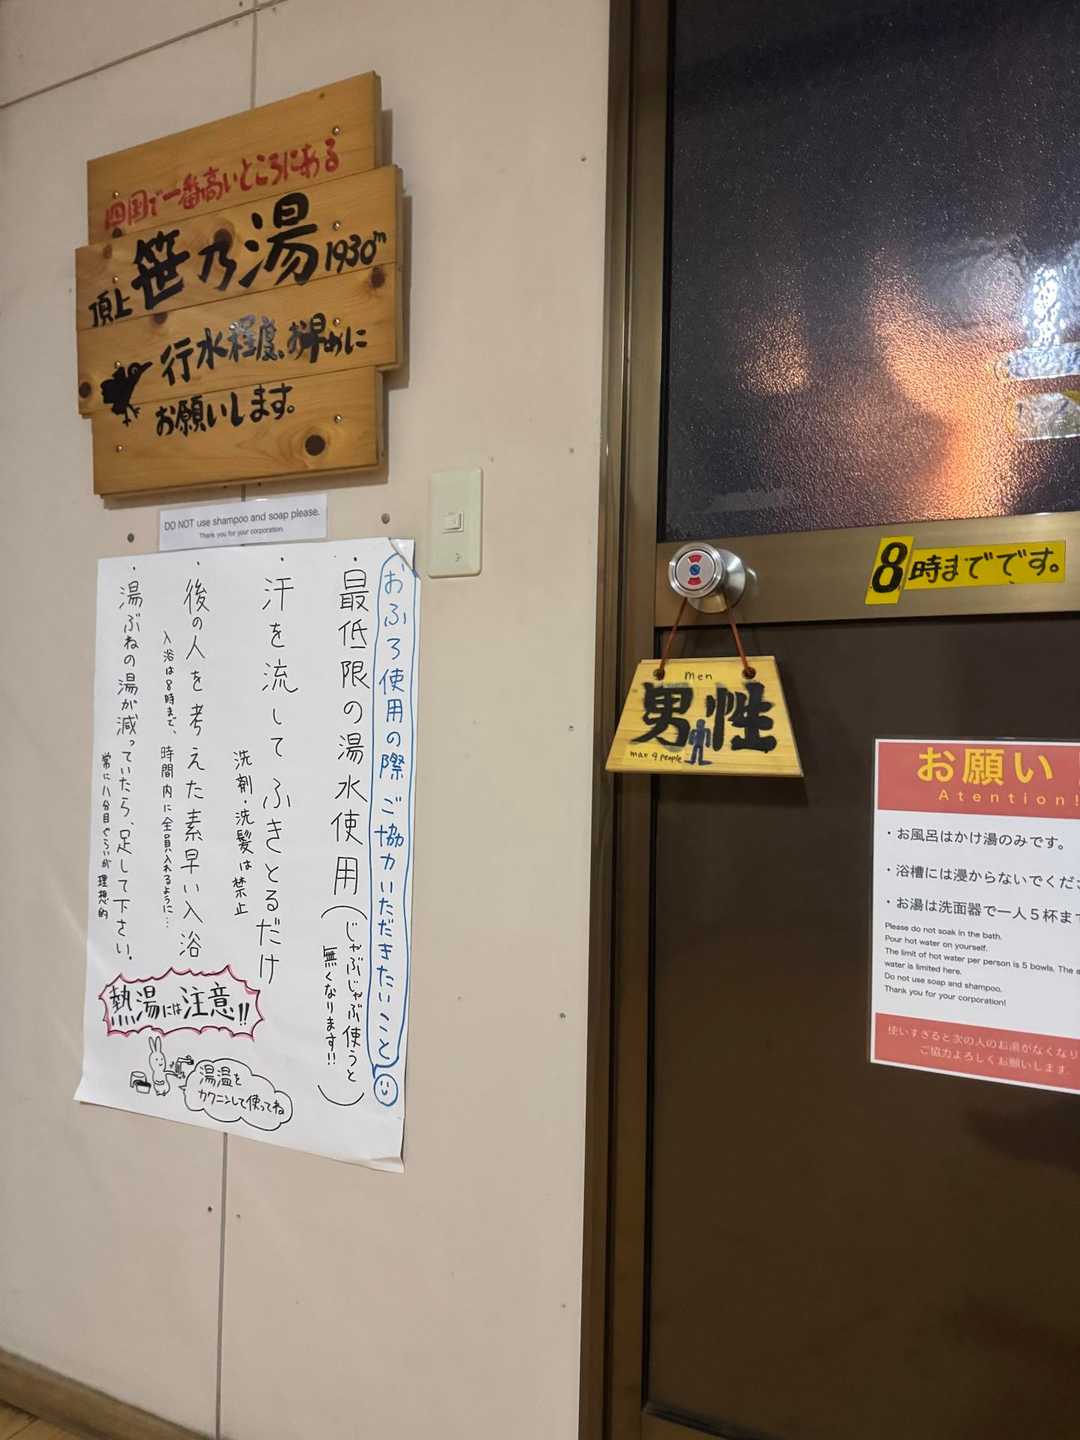 四国で一番高いところにある
頂上 笹乃湯 1930m
行水程度、お早めに
お願いします。
DO NOT use shampoo and soap please.
Thank you for your corporation.
おふろ使用の際ご協力いただきたいこと
・最低限の湯水使用(じゃぶじゃぶ使うと
無くなります!!)
・汗を流してふきとるだけ
洗剤・洗髪は禁止
・後の人を考えた素早い入浴
入浴は8時まで、時間内に全員入れるように…
・湯ぶねの湯が減っていたら、足して下さい。
常に八分目ぐらいが理想的
熱湯には注意!!
湯温を
カクニンして使ってね
8時までです。
men
男性
max 9 people
お願い!
Atention!
・お風呂はかけ湯のみです。
・浴槽には浸からないでくださ
・お湯は洗面器で一人5杯まで
Please do not soak in the bath.
Pour hot water on yourself.
The limit of hot water per person is 5 bowls. The
water is limited here.
Do not use soap and shampoo.
Thank you for your corporation!
使いすぎると次の人のお湯がなくなり
ご協力よろしくお願いします。